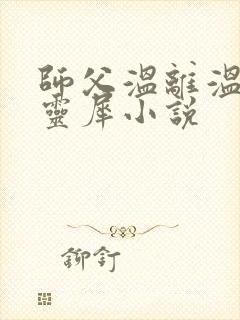 師父溫離溫
靈犀小說
鉚釘